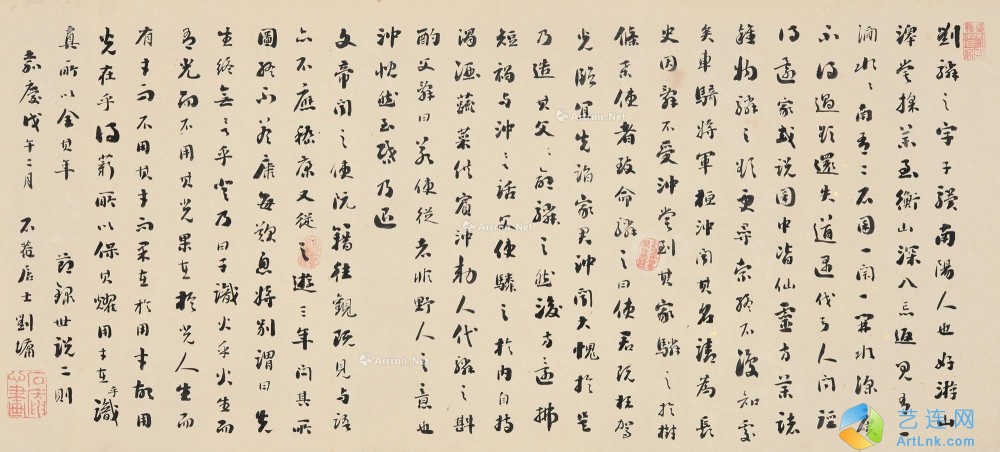 劉驎之字子驥南陽人也好游山
澤嘗採藥至衡山深入忘返見有一
澗水水南有二石囷一閉一開水深廣
不得過欲還失道遇伐弓人問徑
得還家或說囷中皆仙靈方藥諸
雜物驎之欲更尋索終不復知處
矣車騎將軍桓沖聞其名請為長
史因辭不受沖嘗到其家驎之於樹
條桑使者致命驎之曰使君既枉駕
光臨宜先詣家君沖聞大愧於是
乃造其父父命驎之然後方還拂
短褐與沖言話父使驎之於內自持
濁酒蔬菜供賓沖勅人代驎之斟
酌父辭曰若使從者非野人之意也
沖慨然至昏乃退
文帝聞之使阮籍往觀既見與語
亦不應嵇康又從之遊三年問其所
圖終不答康每歎息將別謂曰先
生終無言乎登乃曰子識火乎火生而
有光而不用其光果在於光人生而
有才而不用其才而果在於用才故用
光在乎得薪所以保其耀用才在乎識
真所以全其年 節錄世說二則
嘉慶戊午二月 石菴居士劉墉
Artron.Net
Artron.Net
艺连网
ArtLnk.com